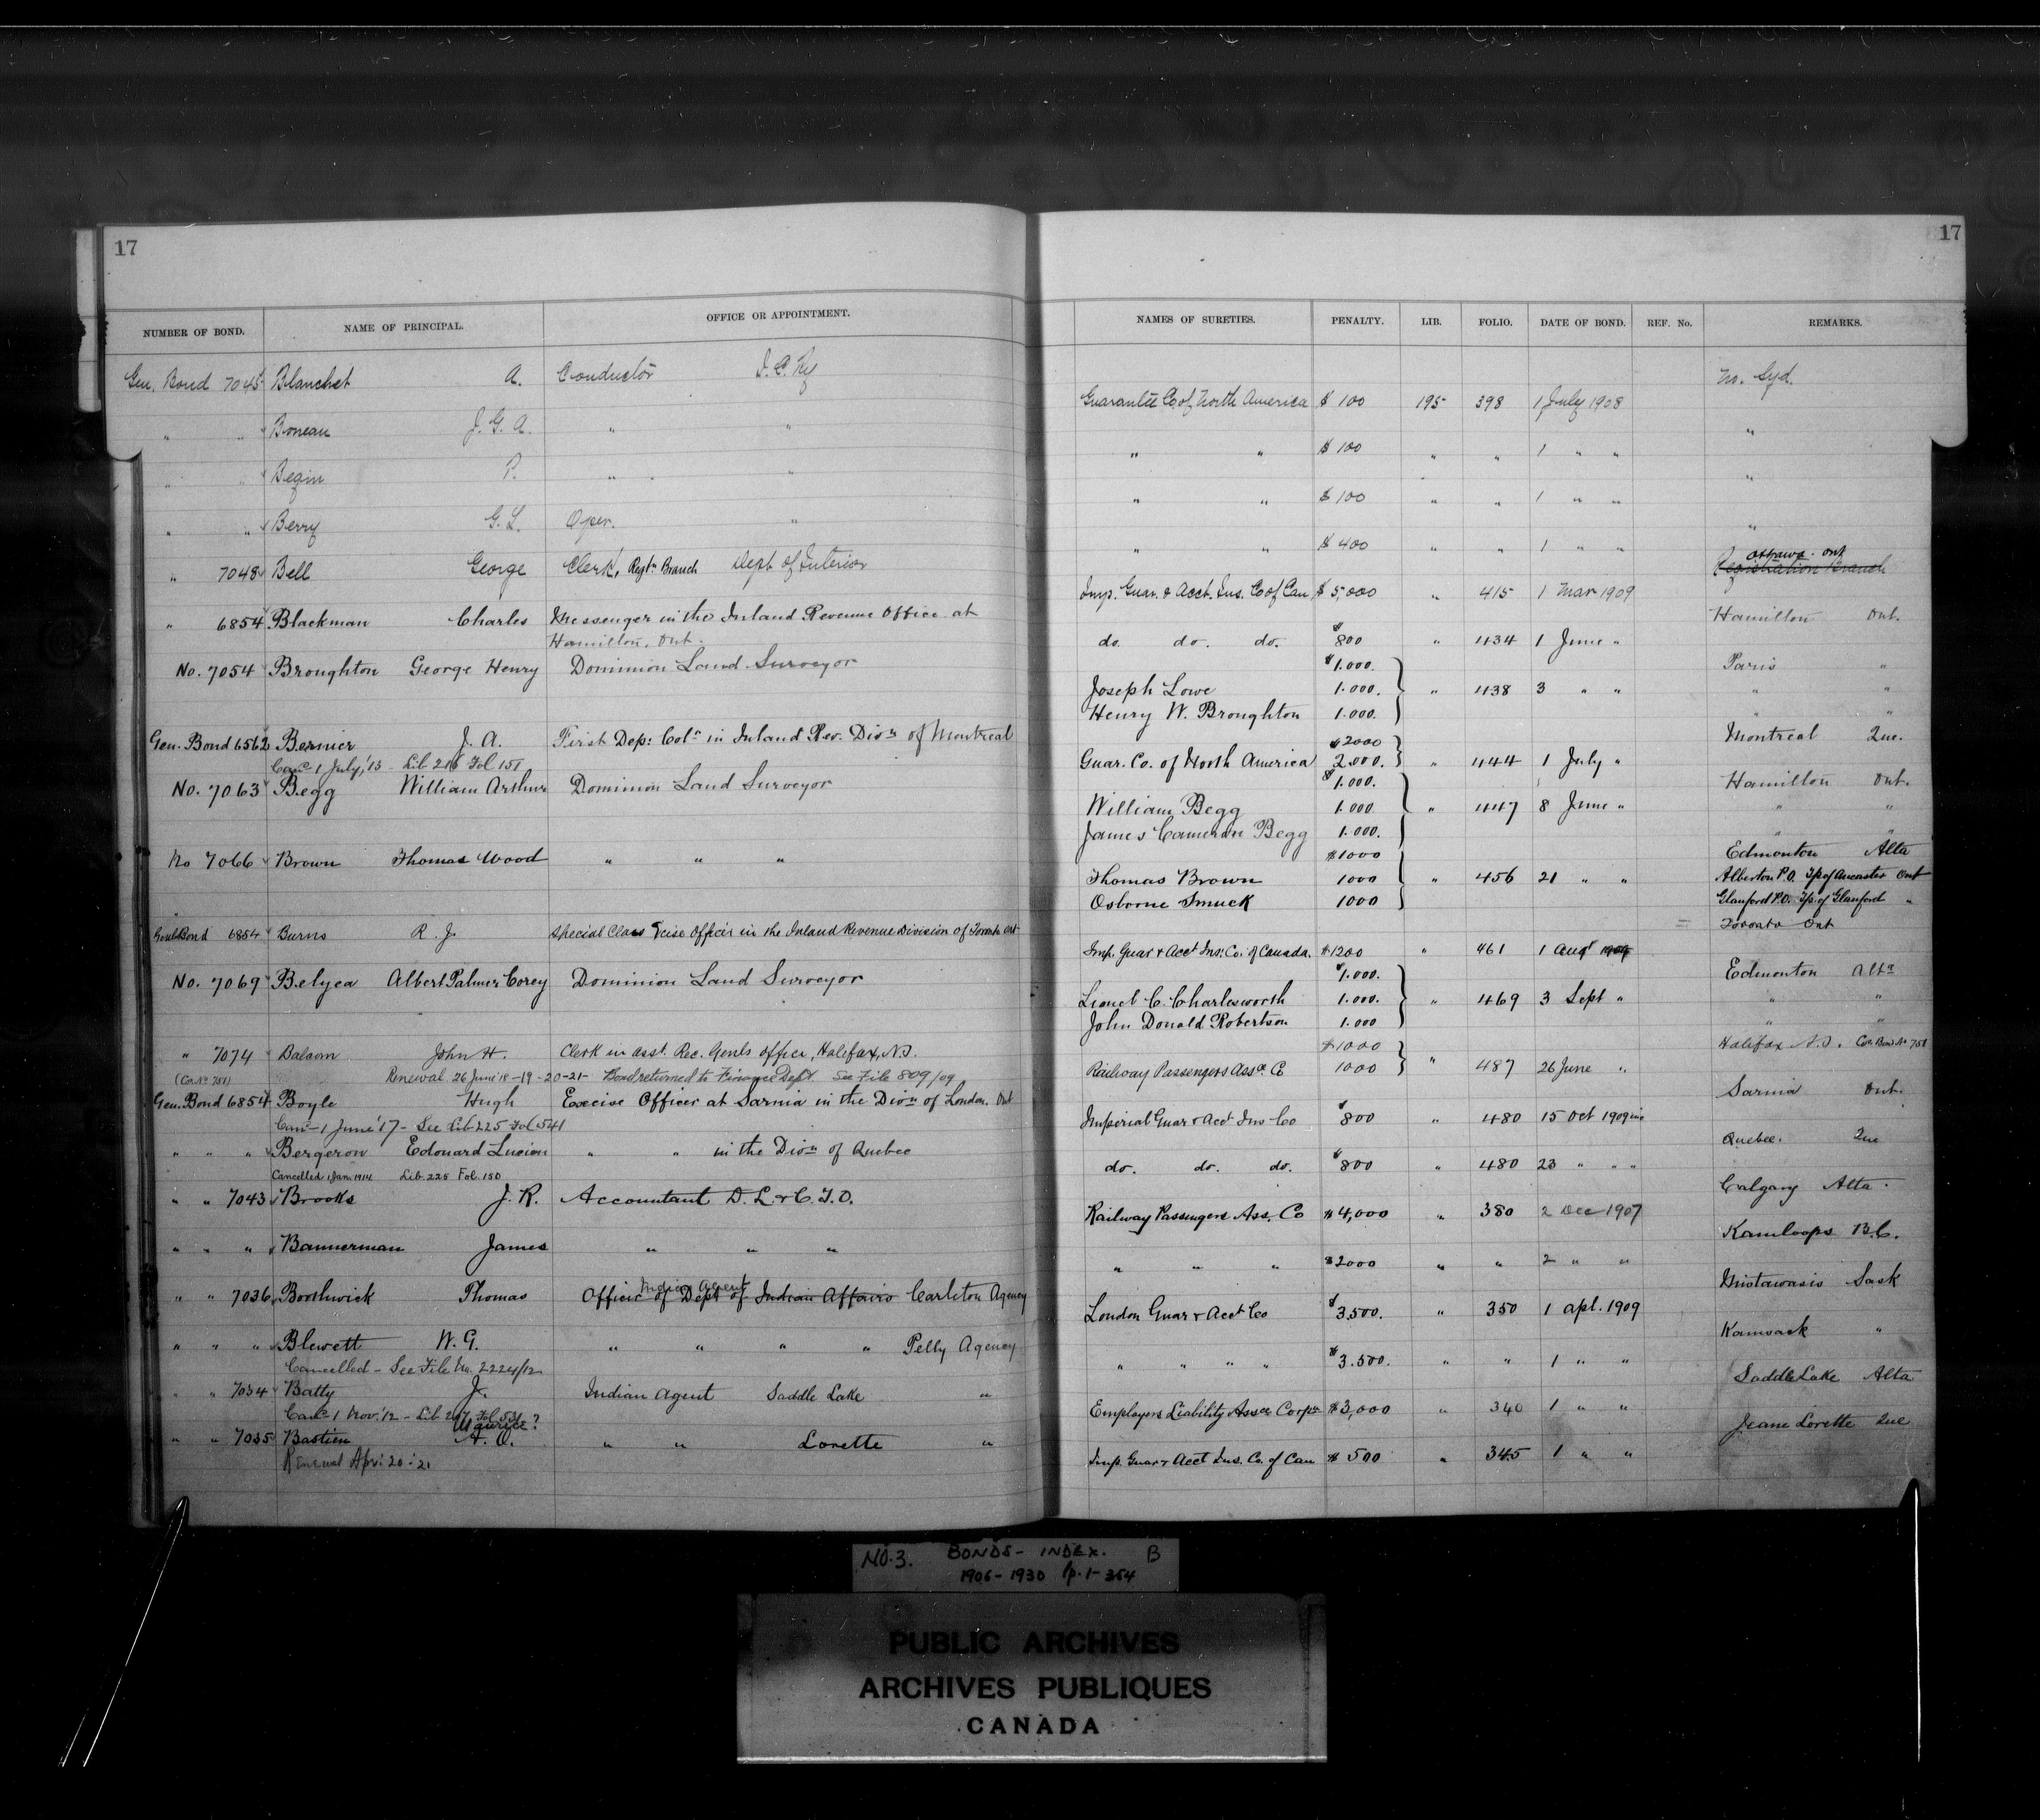 17
17
NUMBER OF BOND. NAME OF PRINCIPAL. OFFICE OR APPOINTMENT. NAMES OF SURETIES. PENALTY. LIB. FOLIO. DATE OF BOND. REF. No. REMARKS.
Gen. Bond 7045 Blanchet A. Conductor I.C. Ry Guarantee Co. of North America $ 100 195 398 1 July 1908 No. Syd.
" " Boneau J. G. A. " " " " $ 100 " " 1 " " "
" " Begin P. " " " " $ 100 " " 1 " " "
" " Berry G. L. Oper. " " " $ 400 " " 1 " " "
Ottawa Ont
" 7048 Bell George Clerk, Regtn Branch Dept of Interior Imp. Guar. & Acct. Ins. Co of Can $ 5,000 " 415 1 Mar 1909 Registration Branch
" 6854 Blackman Charles Messenger in the Inland Revenue Office at Hamilton Ont.
Hamilton, Ont. do. do. do. $ 800 " 434 1 June "
No. 7054 Broughton George Henry Dominion Land Surveyor $1.000. Paris "
Joseph Lowe 1.000. " 438 3 " " " "
Henry W. Broughton 1.000. " "
Gen. Bond 6562 Bernier J. A. First Dep: Colr in Inland Rev. Divn of Montreal $2000 Montreal Que.
Canc 1 July, '13 Lib 216 Fol 151 Guar. Co. of North America 2.000. " 444 1 July "
No. 7063 Begg William Arthur Dominion Land Surveyor $1.000. Hamilton Ont.
William Begg 1.000. " 447 8 June " " "
James Cameron Begg 1.000. " "
No 7066 Brown Thomas Wood " " " $1000 Edmonton Alta
Thomas Brown 1000 " 456 21 " " Alberton P.O. Tp of Ancaster Ont
Osborne Smuck 1000 Glanford P.O. Tp. of Glanford "
Genl Bond 6854 Burns R. J. Special Class Excise Officer in the Inland Revenue Division of Toronto Ont Imp. Guar & Acct Ins: Co. of Canada. $1200 " 461 1 Augt 1909 Toronto Ont
No. 7069 Belyea Albert Palmer Corey Dominion Land Surveyor $1.000. Edmonton Alta
Lionel C. Charlesworth 1.000. " 469 3 Sept " " "
John Donald Robertson 1.000 " "
" 7074 Balcom John H. Clerk in asst. Rec. Genls office, Halifax, N.S. $1000 Halifax N.S. Con. Bond No 751
(Con No 751) Renewal 26 June '18 - 19 - 20 - 21 - Bond returned to Finance Dept. See File 809/09 Railway Passengers Assce Co 1000 " 487 26 June "
Gen. Bond 6854 Boyle Hugh Excise Officer at Sarnia in the Divn of London. Ont Sarnia Ont.
Canc 1 June '17 - See Lib 225 Fol 541 Imperial Guar & Acct Ins Co $ 800 " 480 15 Oct 1909
" " " Bergeron Edouard Lucien " " in the Divn of Quebec Quebec. Que
Cancelled 1 Jan. 1914 Lib. 225 Fol. 150 do. do. do. $ 800 " 480 23 " " "
" " 7043 Brooks J. R. Accountant D. L. & C. T. O. Railway Passengers Ass. Co $ 4,000 " 380 2 Dec 1907 Calgary Alta.
" " " Bannerman James " " " " " " $2000 " " 2 " " Kamloops B.C.
Indian Agent
" " 7036 Borthwick Thomas Officer of Dept of Indian Affairs Carlton Agency London Guar & Acct Co $ 3.500. " 350 1 apl. 1909 Mistawasis Sask
" " " Blewett W. G. " " " " Pelly Agency " " " " $ 3.500. " " 1 " " Kamsack "
Cancelled - See File No. 2224/12
" " 7034 Batty J. Indian Agent Saddle Lake " Employers Liability Assce Corpn $3,000 " 340 1 " " Saddle Lake Alta
Canc 1 Nov. '12 - Lib 217 Fol 531
Maurice?
" " 7035 Bastien A. O. " " Lorette " Imp. Guar & Acct Ins. Co. of Can $ 500 " 345 1 " " Jeune Lorette Que
Renewal Apr: 20: 21
NO. 3. BONDS - INDEX. B
1906 - 1930 p. 1-354
PUBLIC ARCHIVES
ARCHIVES PUBLIQUES
CANADA